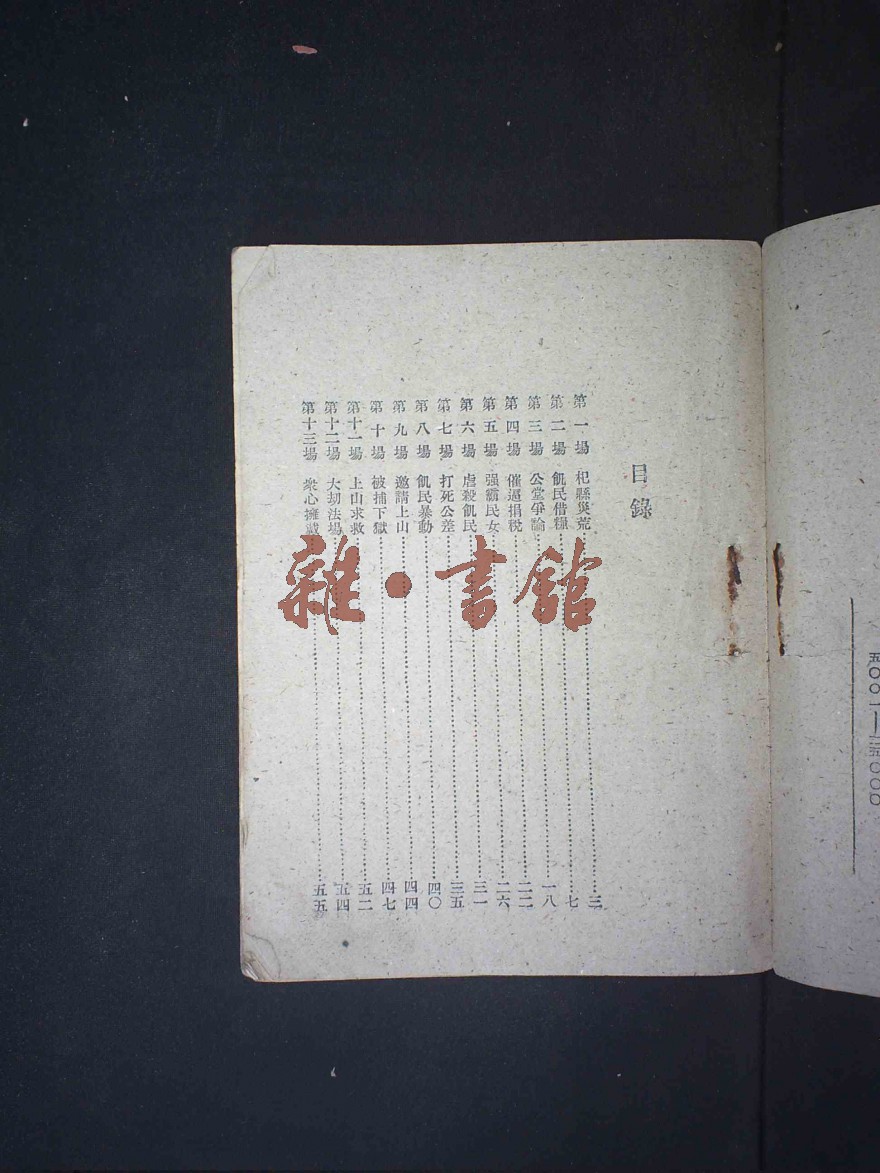 五〇〇一—一五〇〇〇
目錄
第一場 杞縣災荒……三
第二場 飢民借糧……七
第三場 公堂爭論……一八
第四場 催逼捐稅……二二
第五場 强霸民女……二六
第六場 虐殺飢民……三一
第七場 打死公差……三五
第八場 飢民暴動……四〇
第九場 邀請上山……四四
第十場 被捕下獄……四七
第十一場 上山求救……五二
第十二場 大劫法場……五四
第十三場 衆心擁戴……五五
雜·書館